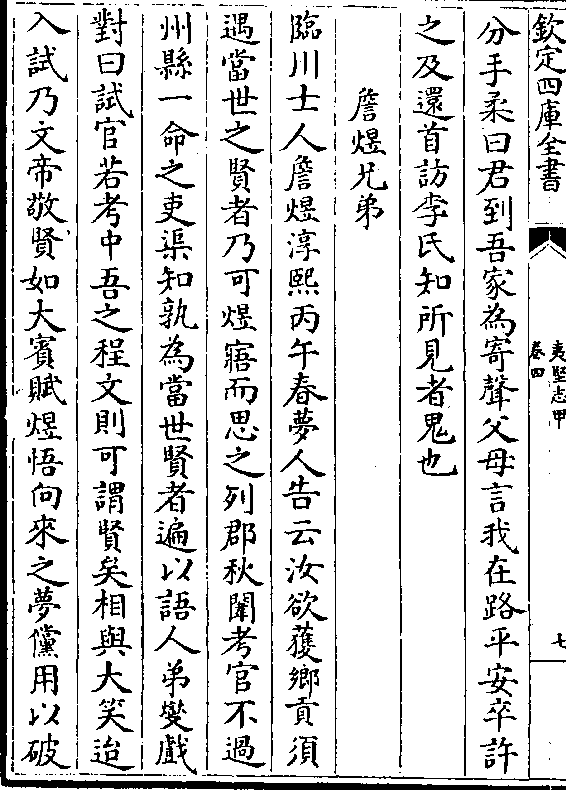 欽定四庫全書
夷堅志甲
卷四
七
分手柔曰君到吾家為寄聲父母言我在路平安卒許
之及還首訪李氏知所見者鬼也
詹煜兄弟
臨川士人詹煜淳熙丙午春夢人告云汝欲獲鄉貢須
遇當世之賢者乃可煜寤而思之列郡秋闈考官不過
州縣一命之吏渠知孰為當世賢者遍以語人弟爕戲
對曰試官若考中吾之程文則可謂賢矣相與大笑迨
入試乃文帝敬賢如大賓賦煜悟向來之夢儻用以破